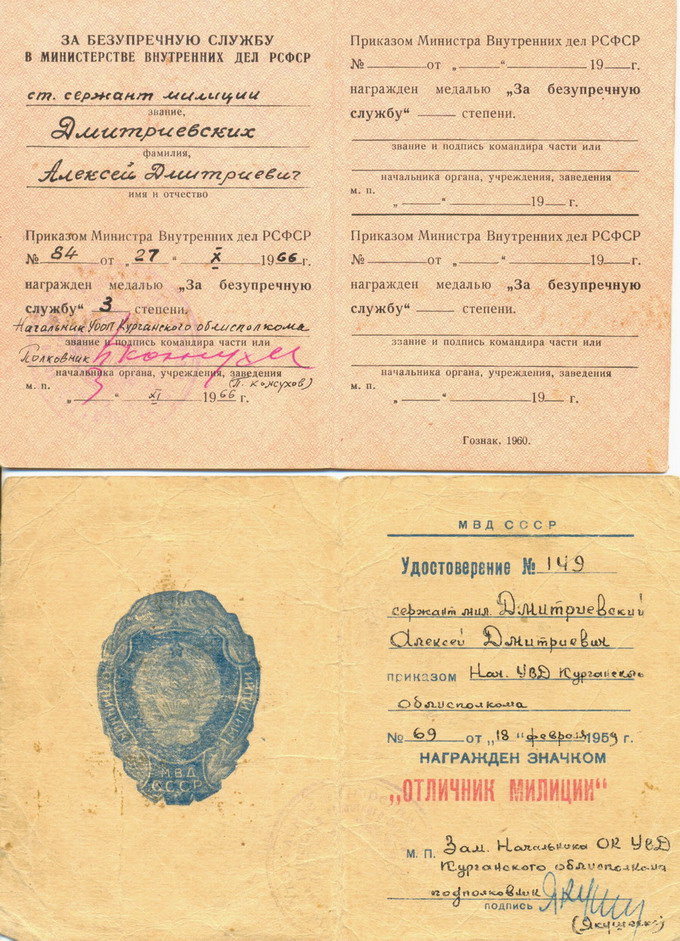 ЗА БЕЗУПРЕЧНУЮ СЛУЖБУ
В МИНИСТЕРСТВЕ ВНУТРЕННИХ ДЕЛ РСФСР
ст. сержант милиции
звание,
Дмитриевских
фамилия,
Алексей Дмитриевич
имя и отчество
Приказом Министра Внутренних дел РСФСР
№ 84 от „27“ X 1966 г.
награжден медалью „За безупречную
службу“ 3 степени.
Начальник УООП Курганского облисполкома
звание и подпись командира части или
Полковник
начальника органа, учреждения, заведения
(П. Кожухов)
м. п. „ “ XI 1966 г.
Приказом Министра Внутренних дел РСФСР
№ от „ “ 19 г.
награжден медалью „За безупречную
службу“ степени.
звание и подпись командира части или
начальника органа, учреждения, заведения
м. п. „ “ 19 г.
Приказом Министра Внутренних дел РСФСР
№ от „ “ 19 г.
награжден медалью „За безупречную
службу“ степени.
звание и подпись командира части или
начальника органа, учреждения, заведения
м. п. „ “ 19 г.
Гознак. 1960.
ОТЛИЧНИК МИЛИЦИИ
МВД
СССР
МВД СССР
Удостоверение № 149
сержант мил. Дмитриевский
Алексей Дмитриевич
приказом Нач. УВД Курганского
облисполкома
№ 69 от „18“ февраля 1959 г.
НАГРАЖДЕН ЗНАЧКОМ
„ОТЛИЧНИК МИЛИЦИИ“
М. П. Зам. Начальника ОК УВД
Курганского облисполкома
подполковник
подпись